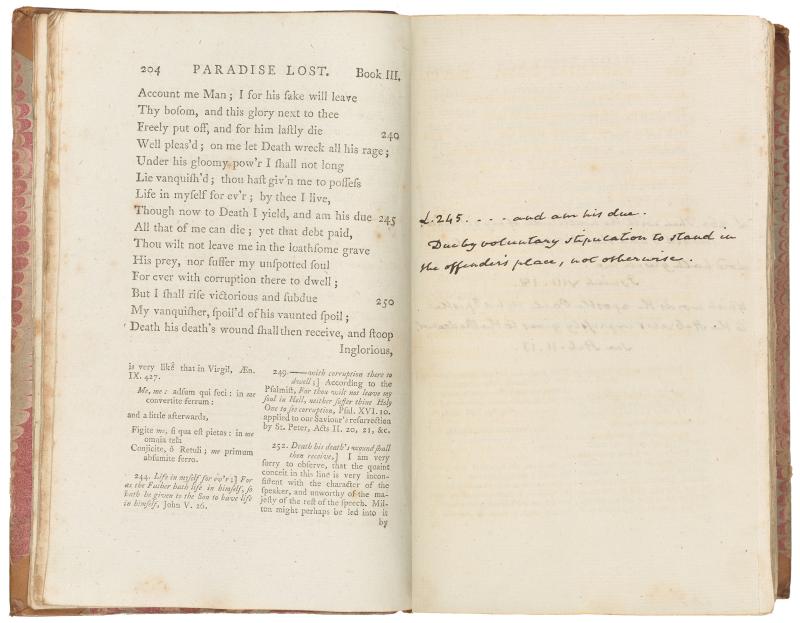 204 PARADISE LOST. Book III.
Account me Man; I for his ſake will leave
Thy boſom, and this glory next to thee
Freely put off, and for him laſtly die 240
Well pleas'd; on me let Death wreck all his rage;
Under his gloomy pow'r I ſhall not long
Lie vanquiſh'd; thou haſt giv'n me to poſſeſs
Life in myſelf for ev'r; by thee I live,
Though now to Death I yield, and am his due 245
All that of me can die; yet that debt paid,
Thou wilt not leave me in the loathſome grave
His prey, nor ſuffer my unſpotted ſoul
For ever with corruption there to dwell;
But I ſhall riſe victorious and ſubdue 250
My vanquiſher, ſpoil'd of his vaunted ſpoil;
Death his death's wound ſhall then receive, and ſtoop
Inglorious,
is very like that in Virgil, Æn.
IX. 427.
Me, me: adſum qui feci: in me
convertite ferrum:
and a little afterwards,
Figite me, ſi qua eſt pietas: in me
omnia tela
Conjicite, ô Rutuli; me primum
abſumite ferro.
244. Life in myſelf for ev'r;] For
as the Father hath life in himſelf, ſo
hath he given to the Son to have life
in himſelf, John V. 26.
249.——with corruption there to
dwell;] According to the
Pſalmiſt, For thou wilt not leave my
ſoul in Hell, neither ſuffer thine Holy
One to ſee corruption, Pſal. XVI. 10.
applied to our Saviour's reſurrection
by St. Peter, Acts II. 20, 21, &c.
252. Death his death's wound ſhall
then receive,] I am very
ſorry to obſerve, that the quaint
conceit in this line is very incon-
ſiſtent with the character of the
ſpeaker, and unworthy of the ma-
jeſty of the reſt of the ſpeech. Mil-
ton might perhaps be led into it
by
L. 245. . . . and am his due.
Due by voluntary stipulation to stand in
the offender's place, not otherwise.